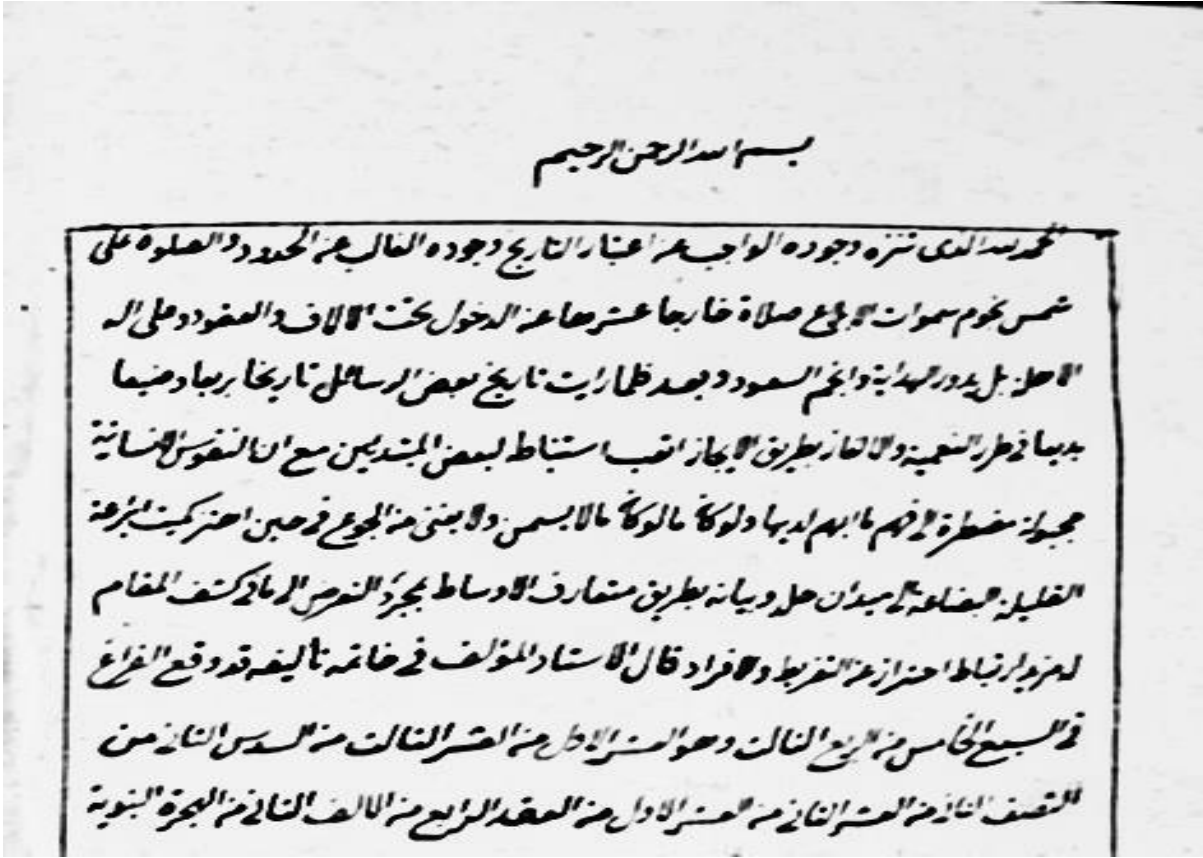 بسم الله الرحمن الرحيم
الحمد لله الذى تنزه وجوده الواجب عن اعتبار التاريخ وجوده الغالب عن الحدود والصلوة على
شمس نجوم سموات صلاة خارجا عشرها عن الدخول تحت الالاف والعقود وعلى اله
الاهلة بل بدور الهداية وانجم السعود وبعد فلما رايت تاريخ بعض الرسائل تاريخا بديعا وضيعا
بديعا فى طرز التعمية والالغاز بطريق الايجاز اتعب استنباطه لبعض المبتديين مع ان النفوس الانسانية
مجبولة مضطرة الى فهم ما ابهم لديها ولو كان مالا يسمن ولا يغنى من الجوع فى حين كميت
القليلة البضاعة الى ميدان حله وبيانه بطريق متعارف الاوساط بمجرد التعرض الى ما فى كشف المقام
له مزيد ارتباط احتراز عن التفريط والافراد قال الاستاد المؤلف فى خاتمة تأليفه قد وقع الفراغ
فى السبع الخامس من الربع الثالث وهو العشر الاول من العشر الثالث من السدس الثانى من
النصف الثانى من العشر الثانى من العشر الاول من العقد الرابع من الالف الثانى من الهجرة النبوية